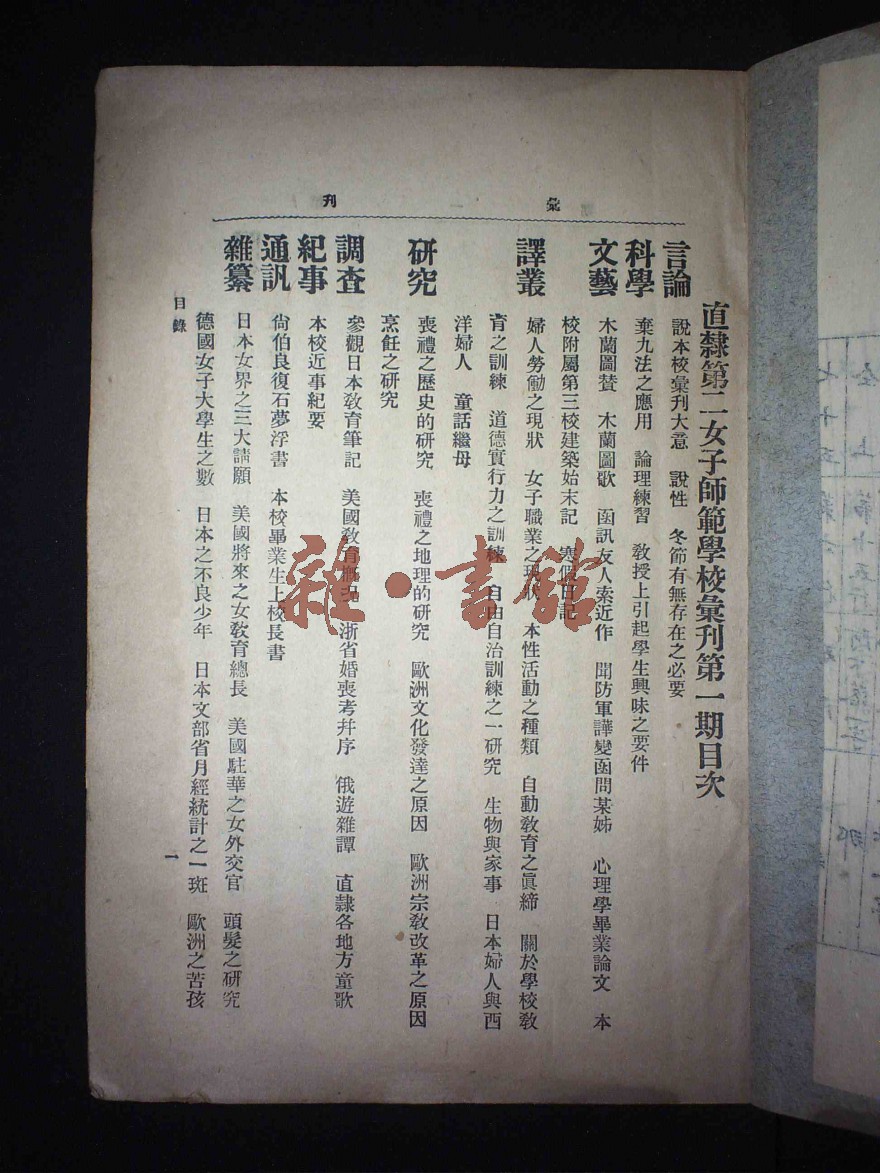 彙刊
直隸第二女子師範學校彙刊第一期目次
言論
說本校彙刊大意　說性　冬節有無存在之必要
科學
棄九法之應用　論理練習　教授上引起學生興味之要件
文藝
木蘭圖贊　木蘭圖歌　函訊友人索近作　聞防軍譁變函問某姊　心理學畢業論文　本
校附屬第三校建築始末記　寒假日記
譯叢
婦人勞働之現狀　女子職業之現狀　本性活動之種類　自動教育之眞締　關於學校教
育之訓練　道德實行力之訓練　自由自治訓練之一研究　生物與家事　日本婦人與西
洋婦人　童話繼母
研究
喪禮之歷史的研究　喪禮之地理的研究　歐洲文化發達之原因　歐洲宗教改革之原因
烹飪之研究
調查
參觀日本敎育筆記　美國敎育概況　浙省婚喪考幷序　俄遊雜譚　直隸各地方童歌
紀事
本校近事紀要
通訊
尙伯良復石夢浮書　本校畢業生上校長書
雜纂
日本女界之三大請願　美國將來之女敎育總長　美國駐華之女外交官　頭髮之研究
德國女子大學生之數　日本之不良少年　日本文部省月經統計之一斑　歐洲之苦孩
目錄
一
雜·書館